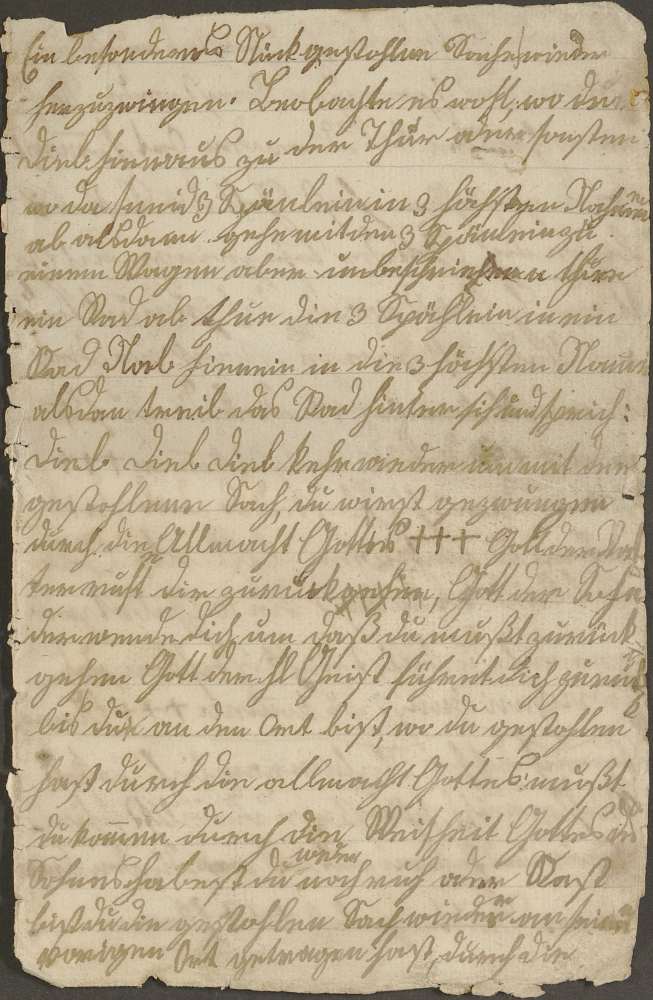 Ein besonderes Stück gestohlene Sache wieder
herzuzwingen. Beobachte es wohl, wo der
Dieb hinnaus zu der Thür oder sonsten
wo da schneid 3 Spänlein in 3 höchsten Nahmen
ab alsdann gehe mit den 3 Spänlein zu
einem Wagen aber unbeschrieen thue
ein Rad ab thue die 3 Spählein in ein
Rad Nab hinnein in die 3 höchsten Namen
alsdan treib das Rad hinter sich und sprich:
Dieb Dieb Dieb kehr wieder um mit der
gestohlenen Sach, du wirst gezwungen
durch die Allmacht Gottes +++ Gott der Va
ter ruft dir zurück gehen, Gott der Sohn
der wende dich um daß du mußt zurück
gehen Gott der hl Geist führet dich zurück
bis du an den Ort bist, wo du gestohlen
hast durch die allmacht Gottes mußt
du komen durch die Weisheit Gottes des
Sohnes habest du weder noch ruh oder Rast
bist du die gestohlen Sach wieder an seinen
vorigen Ort getragen hast, durch die